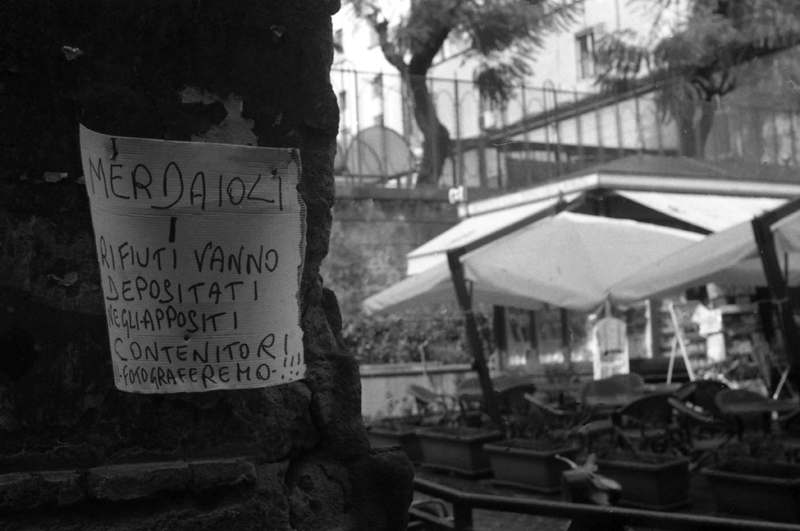 MERDAIOLI
I
RIFIUTI VANNO
DEPOSITATI
NEGLI APPOSITI
CONTENITORI!!!
VI-FOTOGRAFEREMO-!!!